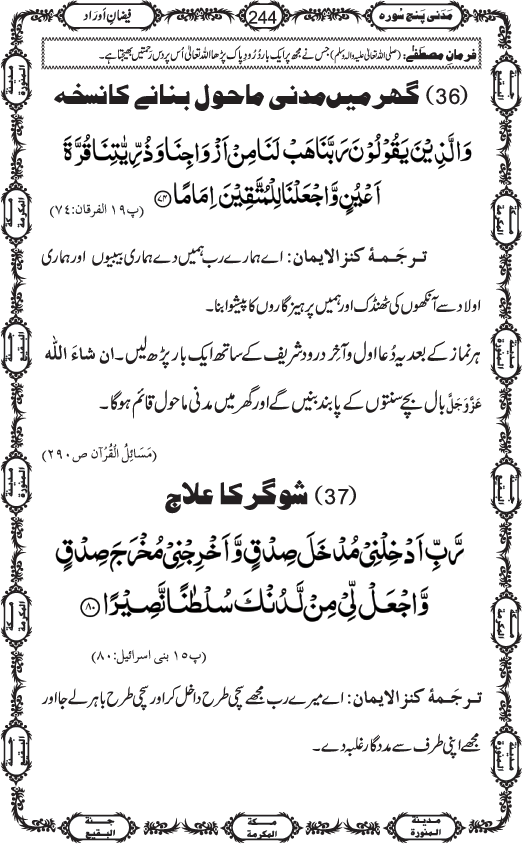 مَدَنی پنج سورہ 244 فیضانِ اَوراد
فرمانِ مصطفٰے: (صلی اللہ تعالیٰ علیہ والہ وسلم) جس نے مجھ پر ایک بار دُرُودِ پاک پڑھا اللہ تعالیٰ اُس پر دس رحمتیں بھیجتا ہے۔
(36) گھر میں مدنی ماحول بنانے کا نسخہ
وَالَّذِیْنَ یَقُوْلُوْنَ رَبَّنَا هَبْ لَنَا مِنْ اَزْوَاجِنَا وَذُرِّیّٰتِنَا قُرَّةَ
اَعْیُنٍ وَّاجْعَلْنَا لِلْمُتَّقِیْنَ اِمَامًا ﴿۷۴﴾ (پ۱۹ الفرقان:۷۴)
ترجَمۂ کنز الایمان: اے ہمارے رب ہمیں دے ہماری بیبیوں اور ہماری
اولاد سے آنکھوں کی ٹھنڈک اور ہمیں پرہیزگاروں کا پیشوا بنا۔
ہر نماز کے بعد یہ دُعا اول و آخر درود شریف کے ساتھ ایک بار پڑھ لیں۔ ان شاءَ اللہ
عَزَّوَجَلَّ بال بچے سنتوں کے پابند بنیں گے اور گھر میں مدنی ماحول قائم ہوگا۔
(مَسَائِلُ الْقُرْآن ص۲۹۰)
(37) شوگر کا علاج
رَّبِّ اَدْخِلْنِیْ مُدْخَلَ صِدْقٍ وَّاَخْرِجْنِیْ مُخْرَجَ صِدْقٍ
وَّاجْعَلْ لِّیْ مِنْ لَّدُنْكَ سُلْطٰنًا نَّصِیْرًا ﴿۸۰﴾
(پ۱۵ بنی اسرائیل:۸۰)
ترجَمۂ کنز الایمان: اے میرے رب مجھے سچی طرح داخل کر اور سچی طرح باہر لے جا اور
مجھے اپنی طرف سے مددگار غلبہ دے۔
مدینۃ المنورۃ
مکۃ المکرمۃ
جنۃ البقیع
مدینۃ المنورۃ
مکۃ المکرمۃ
جنۃ البقیع
جنۃ البقیع
مکۃ المکرمۃ
مدینۃ المنورۃ
جنۃ البقیع
مکۃ المکرمۃ
مدینۃ المنورۃ
مدینۃ المنورۃ
مکۃ المکرمۃ
جنۃ البقیع